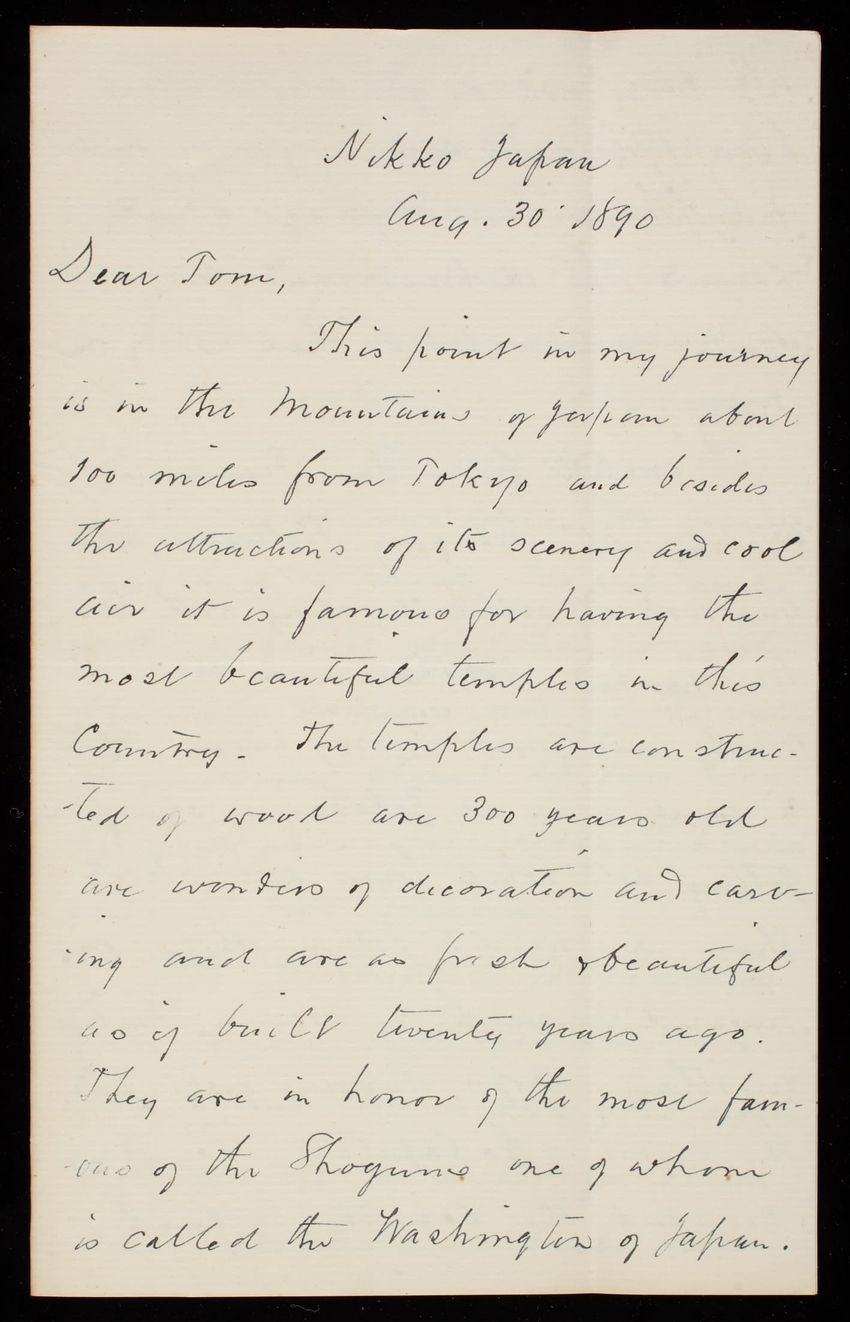 Nikko Japan
Aug. 30 1890
Dear Tom,
This point in my journey
is in the Mountains of Japan about
100 miles from Tokyo and besides
the attractions of its scenery and cool
air it is famous for having the
most beautiful temples in this
Country. The temples are construc-
-ted of wood are 300 years old
are wonders of decoration and carv-
-ing and are as fresh & beautiful
as if built twenty years ago.
They are in honor of the most fam-
-ous of the Shoguns one of whom
is called the Washington of Japan.